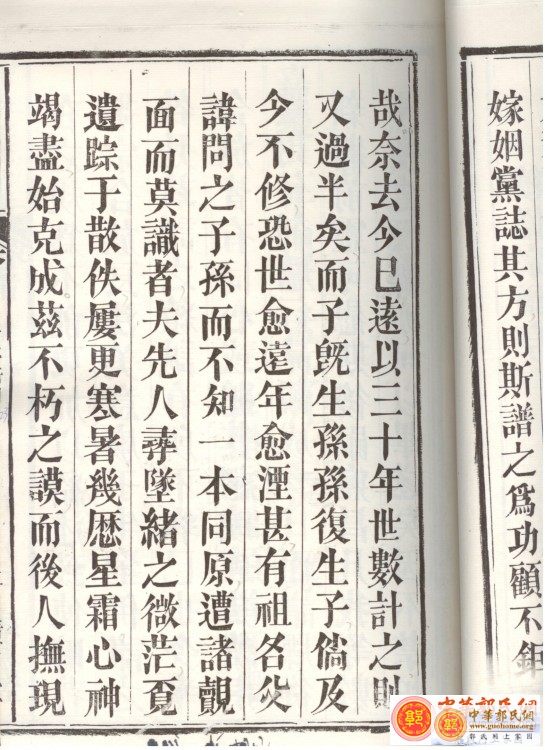 嫁姻黨誌其方則斯譜之爲功顧不鉅
哉奈去今已遠以三十年世數計之則
又過半矣而子既生孫孫復生子倘及
今不修恐世愈遠年愈湮甚有祖名父
諱問之子孫而不知一本同原遭諸覿
面而莫識者夫先人尋墜緒之微茫覓
遺踪于散佚屢更寒暑幾歴星霜心神
竭盡始克成茲不朽之謨而後人撫現
中華郭氏網
www.guohome.org
郭氏網上家園